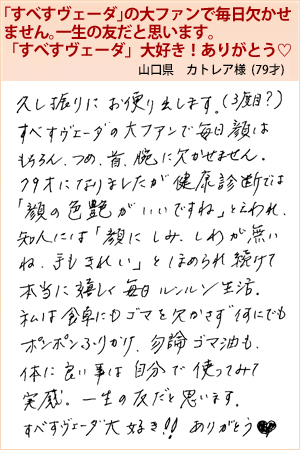 「すべすヴェーダ」の大ファンで毎日欠かせ
ません。一生の友だと思います。
「すべすヴェーダ」大好き!ありがとう♡
山口県 カトレア様 (79才)
久し振りにお便り出します。(3度目?)
すべすヴェーダの大ファンで毎日顔は
もちろん、つめ、首、腕に欠かせません。
79才になりましたが健康診断では
「顔の色艶がいいですね」と云われ、
知人には「顔にしみ、しわが無い
ね、手もきれい」とほめられ続けて
本当に嬉しく毎日ルンルン生活。
私は食卓にもゴマを欠かさず何にでも
ポンポンふりかけ、勿論ゴマ油も、
体に良い事は自分で使ってみて
実感。一生の友だと思います。
すべすヴェーダ大好き!!ありがとう♥